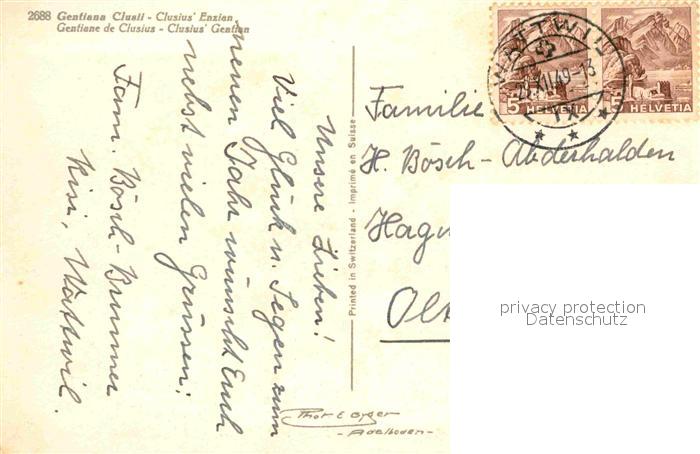 2688 Gentiana Clusii - Clusius' Enzian
Gentiane de Clusius - Clusius' Gentian
Unsere Lieben!
Viel Glück u. Segen zum
neuen Jahr wünscht Euch
nebst vielen Grüssen:
Fam. Bösch-Brunner
Wattwil.
Printed in Switzerland - Imprimé en Suisse
Phot E Gyger
- Adelboden -
WATTWIL
5 HELVETIA
5 HELVETIA
Familie
H. Bösch-Abderhalden
privacy protection
Datenschutz